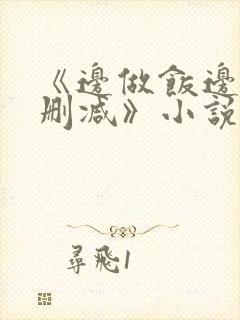 《邊做飯邊
刪减》小說
尋飛1